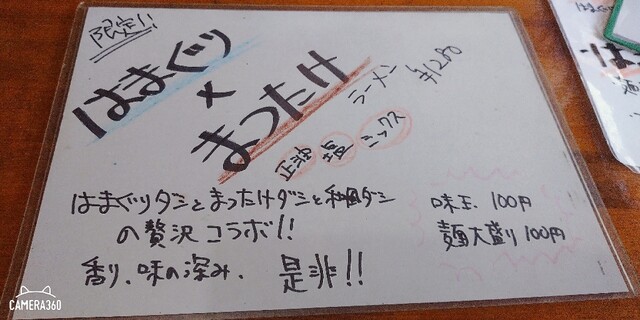 限定!!
はまぐり
×
まつたけ
ラーメン ¥1280
正油 塩 ミックス
はまぐりダシとまつたけダシと和風ダシ
の贅沢コラボ!!
香り、味の深み、 是非!!
味玉 100円
麺大盛り 100円
CAMERA360